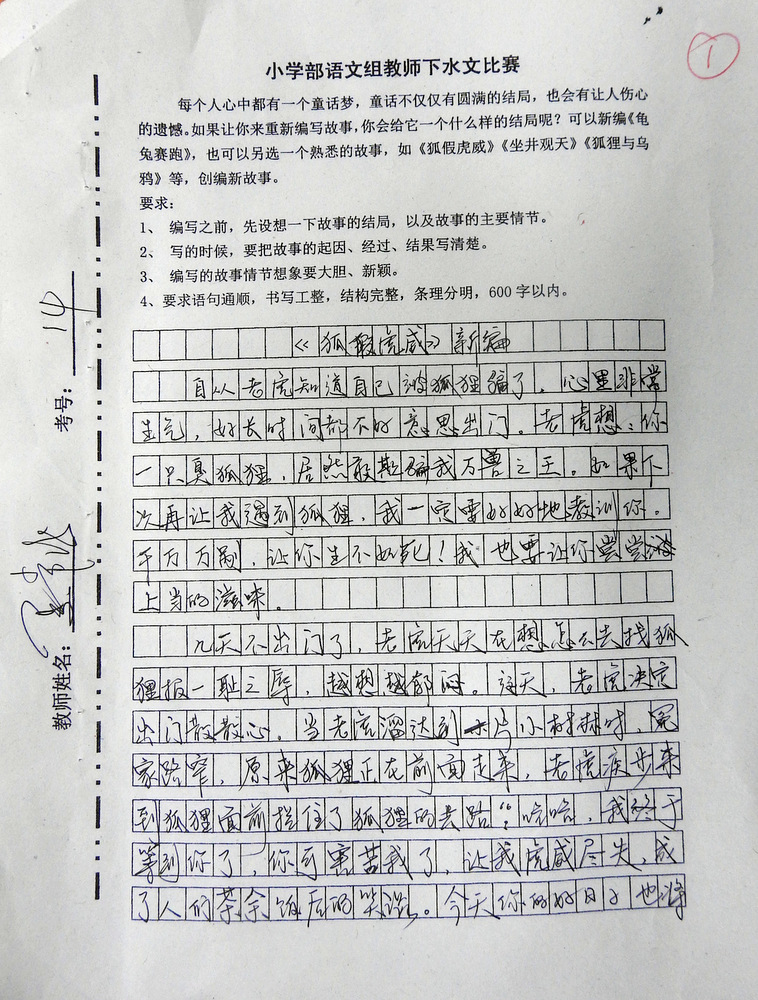 1
小学部语文组教师下水文比赛
每个人心中都有一个童话梦，童话不仅仅有圆满的结局，也会有让人伤心
的遗憾。如果让你来重新编写故事，你会给它一个什么样的结局呢？可以新编《龟
兔赛跑》，也可以另选一个熟悉的故事，如《狐假虎威》《坐井观天》《狐狸与乌
鸦》等，创编新故事。
要求：
1、 编写之前，先设想一下故事的结局，以及故事的主要情节。
2、 写的时候，要把故事的起因、经过、结果写清楚。
3、 编写的故事情节想象要大胆、新颖。
4、要求语句通顺，书写工整，结构完整，条理分明，600字以内。
考号：14
教师姓名：
《狐假虎威》新编
自从老虎知道自己被狐狸骗了，心里非常
生气，好长时间都不好意思出门。老虎想：你
一只臭狐狸，居然敢欺骗我万兽之王。如果下
次再让我遇到狐狸，我一定要好好地教训你。
千刀万剐，让你生不如死！我也要让你尝尝被
上当的滋味。
几天不出门了，老虎天天在想怎么去找狐
狸报一耻之辱，越想越郁闷。这天，老虎决定
出门散散心。当老虎溜达到一片小树林时，冤
家路窄，原来狐狸正在前面走来，老虎疾步来
到狐狸面前拦住了狐狸的去路“哈哈，我终于
等到你了，你可害苦我了，让我虎威尽失，成
了人们茶余饭后的笑谈。今天你的好日子也